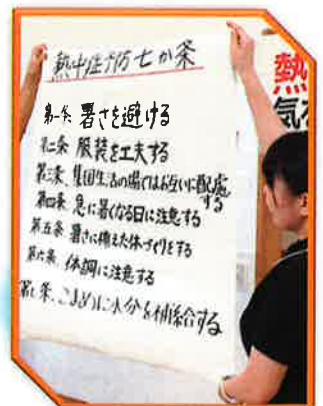 熱中症予防七か条
第一条 暑さを避ける
第二条 服装を工夫する
第三条、集団生活の場ではお互いに配慮
する
第四条 急に暑くなる日に注意する
第五条 暑さに備えた体づくりをする
第六条 体調に注意する
第七条、こまめに水分を補給する
熱
気を